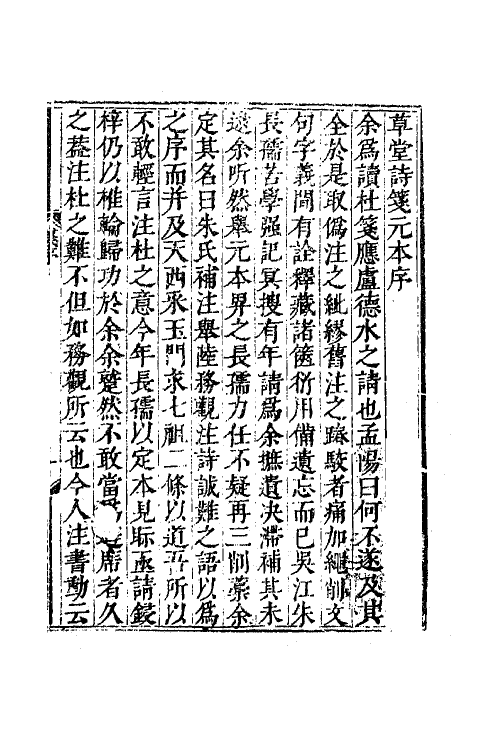 草堂詩箋元本序
余為讀杜箋應盧德水之請也孟陽曰何不遂及其
全於是取偽注之紕繆舊注之踳駁者痛加繩削文
句字義間有詮釋藏諸篋衍用備遺忘而已吳江朱
長孺苦學强記冥搜有年請為余摭遺決滯補其未
逮余听然舉元本畀之長孺力任不疑再三削藁余
定其名曰朱氏補注舉陸務觀注詩誠難之語以為
之序而并及天西采玉門求七祖二條以道吾所以
不敢輕言注杜之意今年長孺以定本見眎亟請鋟
梓仍以椎輪歸功於余余蹵然不敢當為席者久
之葢注杜之難不但如務觀所云也今人注書動云